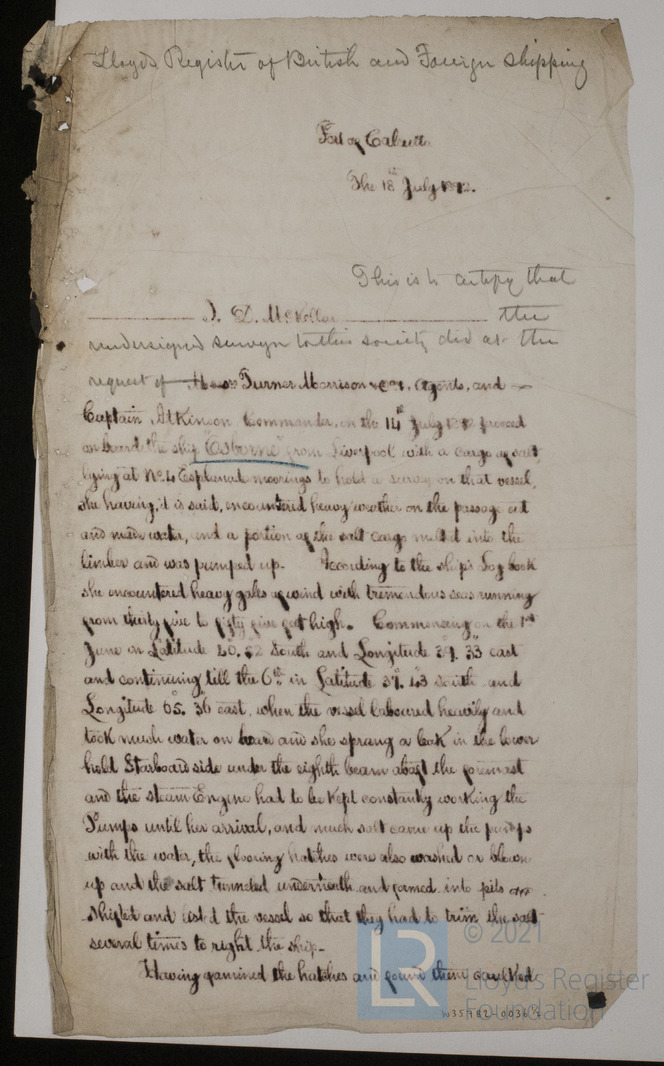 Lloyds Register of British and Foreign shipping
Port of Calcutta
The 18th July 1892.
This is to certify that
J. D. McKellar the
undersigned surveyor to this society did at the
request of Messrs Turner Morrison & Co, Agents, and
Captain Atkinson Commander, on the 14th July 1892 proceed
on board the ship "Osborne" from Liverpool with a cargo of salt,
lying at No. 4 Esplanade moorings to hold a survey on that vessel,
she having, it is said, encountered heavy weather on the passage out
and made water, and a portion of the salt cargo melted into the
limber and was pumped up. According to the ship's Log book
she encountered heavy gales of wind with tremendous seas running
from thirty five to fifty five feet high. Commencing on the 1st
June in Latitude 40°. 52 South and Longitude 39°. 33 east
and continuing till the 6th in Latitude 39°. 43 South and
Longitude 65°. 36 east, when the vessel laboured heavily and
took much water on board and she sprang a leak in the lower
hold Starboard side under the eighth beam abaft the foremast
and the steam Engine had to be kept constantly working the
Pumps until her arrival, and much salt came up the pumps
with the water, the flooring hatches were also washed or blown
up and the salt tunneled underneath and formed into pits
shifted and listed the vessel so that they had to trim the salt
several times to right the ship-
Having examined the hatches and found them caulked
© 2021
LR
Lloyd's Register
Foundation
W35982-0036